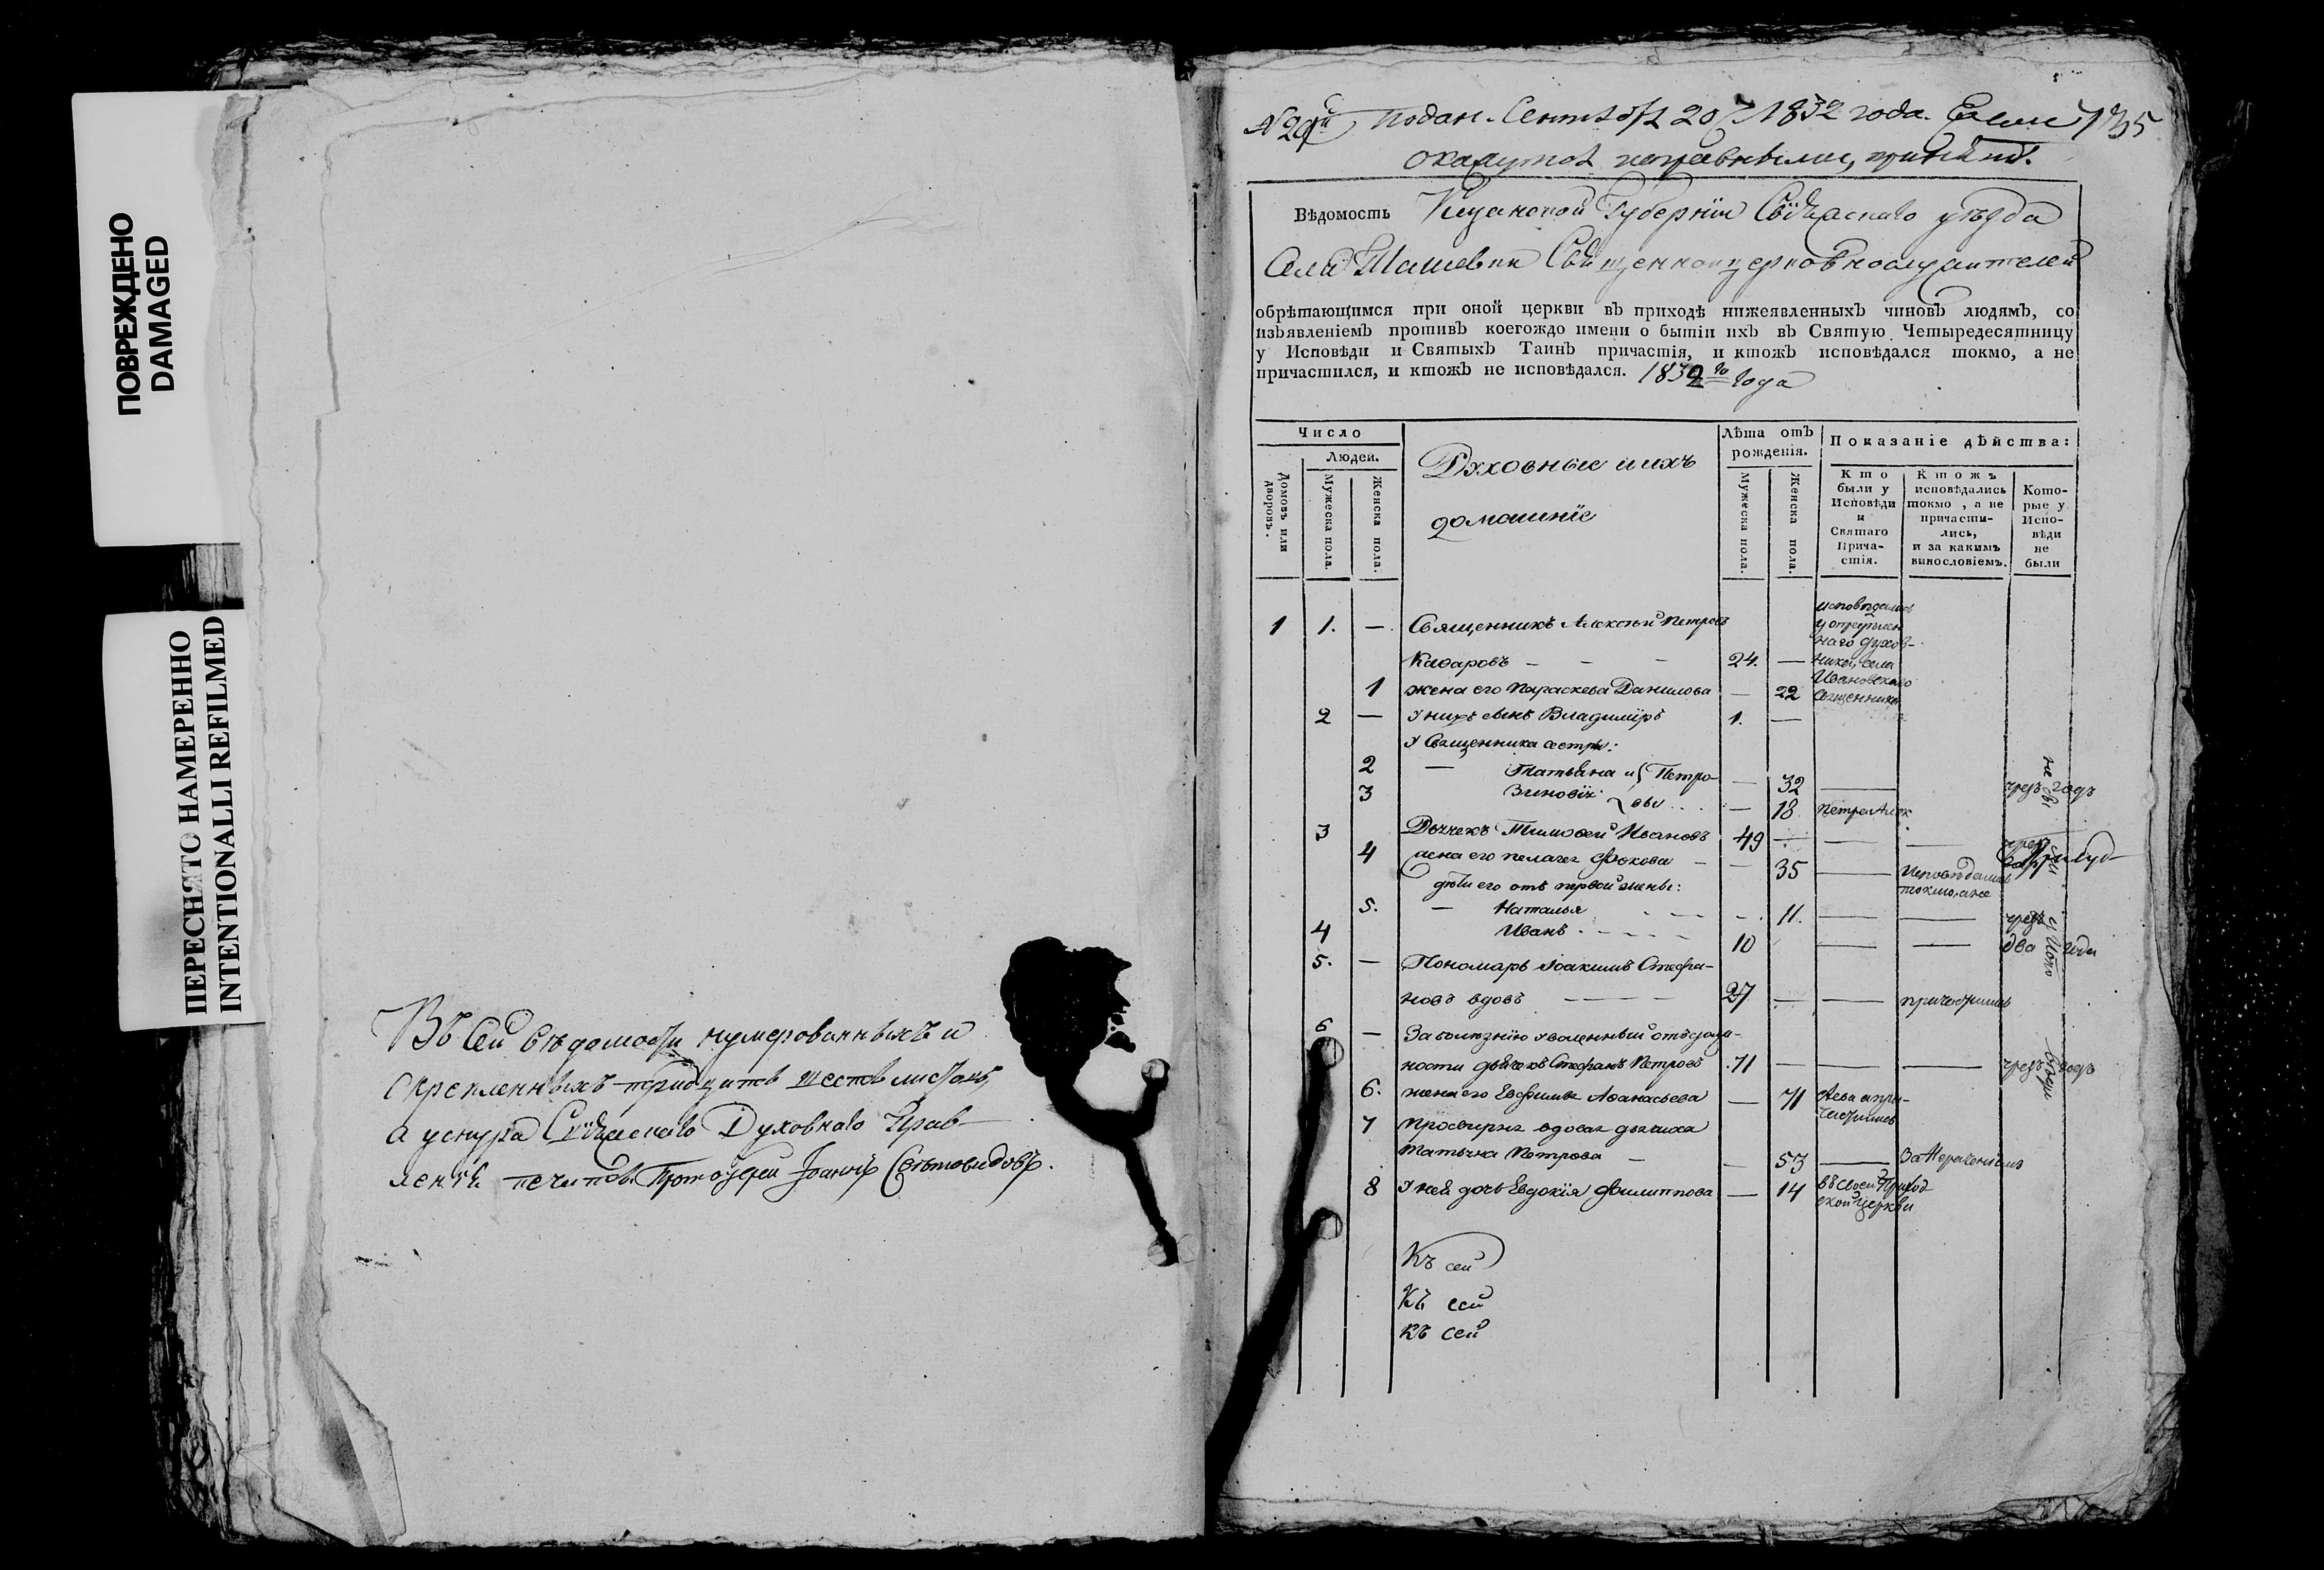 ПОВРЕЖДЕНО
DAMAGED
ПЕРЕСНЯТО НАМЕРЕННО
INTENTIONALLI REFILMED
Въ сей вѣдомости нумерованныхъ и
скрепленныхъ тридцать шесть листовъ,
а у снура Свіяжскаго Духовнаго Прав-
ленія печать. Протоіерей Іоаннъ Свѣтовидовъ.
подан. Сентября 20 1832 года. Если
окажутся исправными, принять.
Вѣдомость Казанской Губерніи Свіяжскаго уѣзда
Села Шашевки Священноцерковнослужителей
обрѣтающимся при оной церкви въ приходѣ нижеявленныхъ чиновъ людямъ, со
изъявленіемъ противъ коегождо имени о бытіи ихъ въ Святую Четыредесятницу
у Исповѣди и Святыхъ Таинъ причастія, и ктожъ исповѣдался токмо, а не
причастился, и ктожъ не исповѣдался. 1832 го года
Число
Людей.
Домовъ или дворовъ.
Мужеска пола.
Женска пола.
Духовные и ихъ
домашніе
Лѣта отъ
рожденія.
Мужеска пола.
Женска пола.
Показаніе дѣйства:
Кто
были у
Исповѣди
и
Святаго
Прича-
стія.
Ктожъ
исповѣдались
токмо, а не
причасти-
лись,
и за какимъ
винословіемъ.
Кото-
рые у
Испо-
вѣди
не
были
1 1. — Священникъ Алексѣй Петровъ
— 24. —
исповѣдались
наго духов-
ника, села
Ивановскаго
священника
1 жена его Параскева Данилова — 22
2 — У нихъ сынъ Владиміръ 1. —
У Священника сестры:
2 — Татьяна и Петро- — 32 — чрезъ годъ
3 Зиновія вы — 18
3 Дьячекъ Тимофей Ивановъ 49 — — —
4 жена его Пелагея Фокова — 35 — Исповѣдались
токмо, а не
дѣти его отъ первой жены:
5. — Наталья — 11. — — чрезъ
4 Иванъ 10 — — два года
5. — Пономарь Іоакимъ Стефа-
новъ вдовъ 27 — — причастились
6 — За болѣзнію уволенный отъ долж-
ности дьячекъ Стефанъ Петровъ 71 — — — чрезъ годъ
6. жена его Евфимія Аѳанасьева — 71
7 Просвирня вдовая дьячиха
Татьяна Петрова — — 53 — За нераченіемъ
8 У ней дочь Евдокія Филиппова — 14 въ своей Приход
ской Церкви
Къ сей
Къ сей
Къ сей